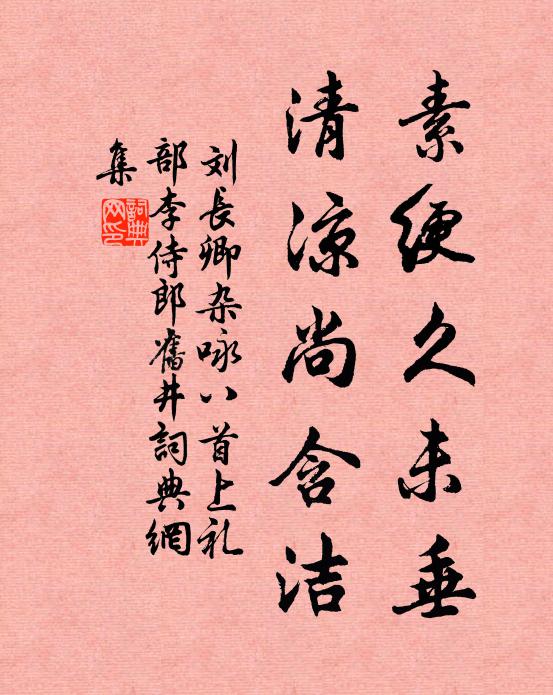 素绠久未垂
清凉尚含洁
刘長卿杂咏八首上礼
部李侍郎舊井詞典網
集
詞典網印